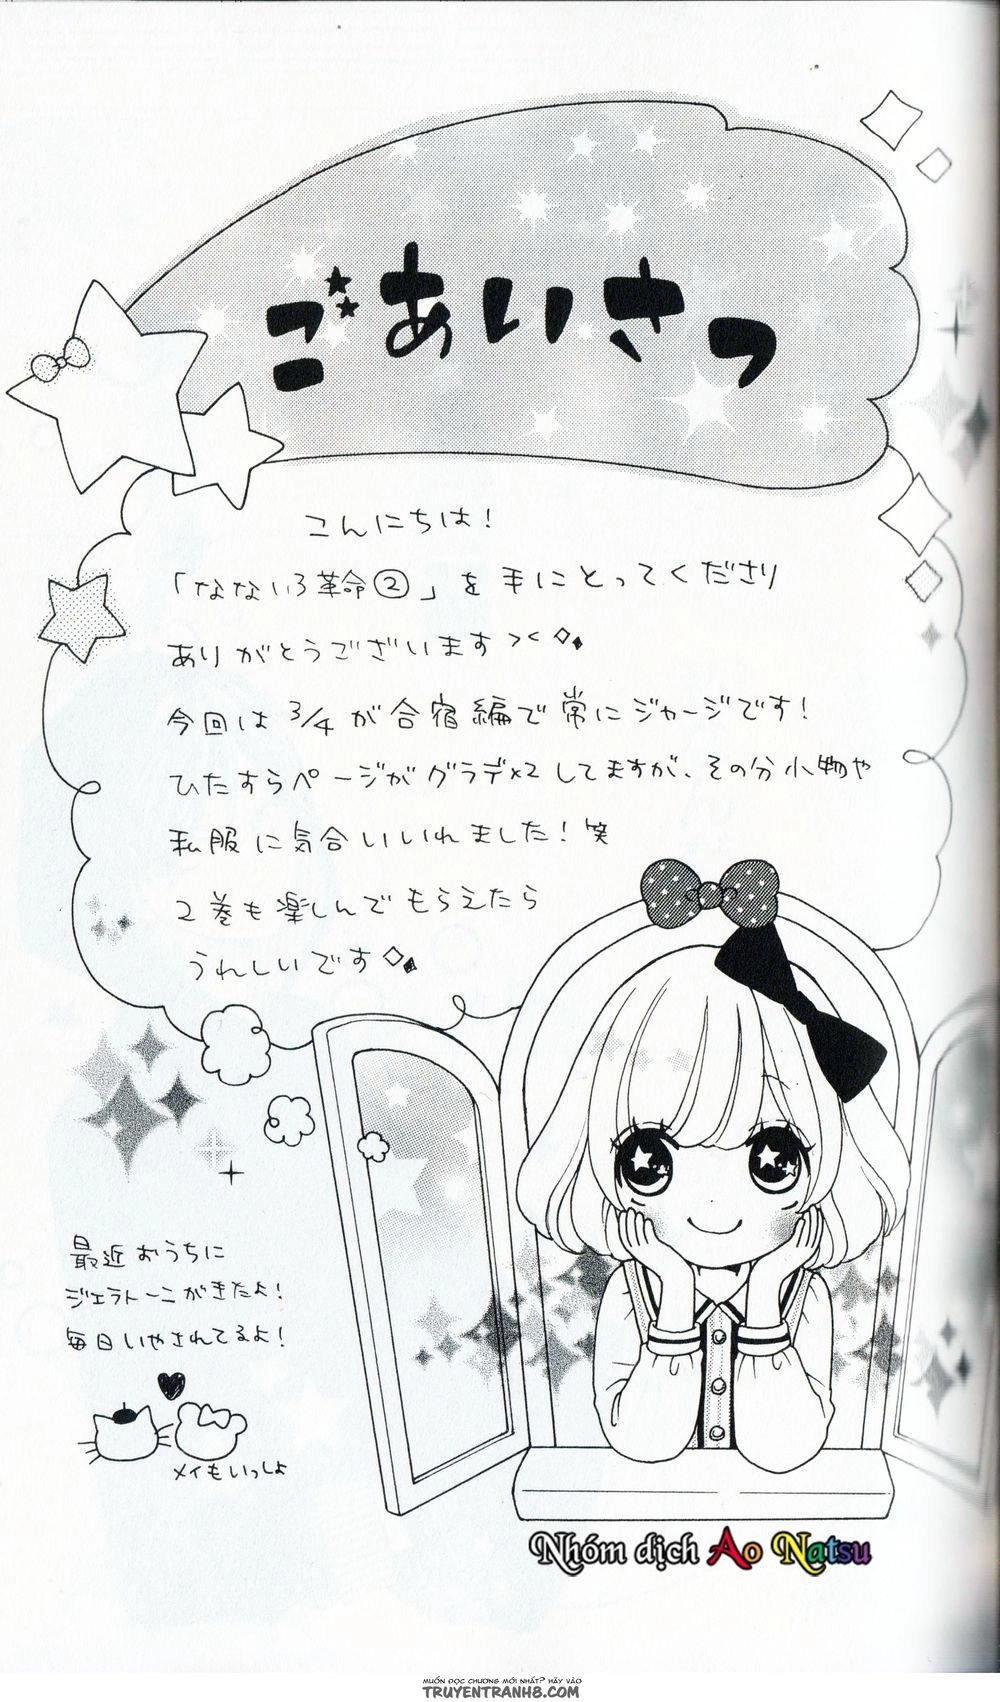 ごあいさつ
こんにちは!
「なないろ革命②」を手にとってくださり
ありがとうございます><
今回は3/4が合宿編で常にジャージです!
ひたすらページがグラデ×2してますが、その分小物や
私服に気合いいれました!笑
2巻も楽しんでもらえたら
うれしいです
最近おうちに
ジェラトーニがきたよ!
毎日いやされてるよ!
メイもいっしょ
Nhóm dịch Ao Natsu
MUỐN ĐỌC CHƯƠNG MỚI NHẤT? HÃY VÀO
TRUYENTRANH8.COM